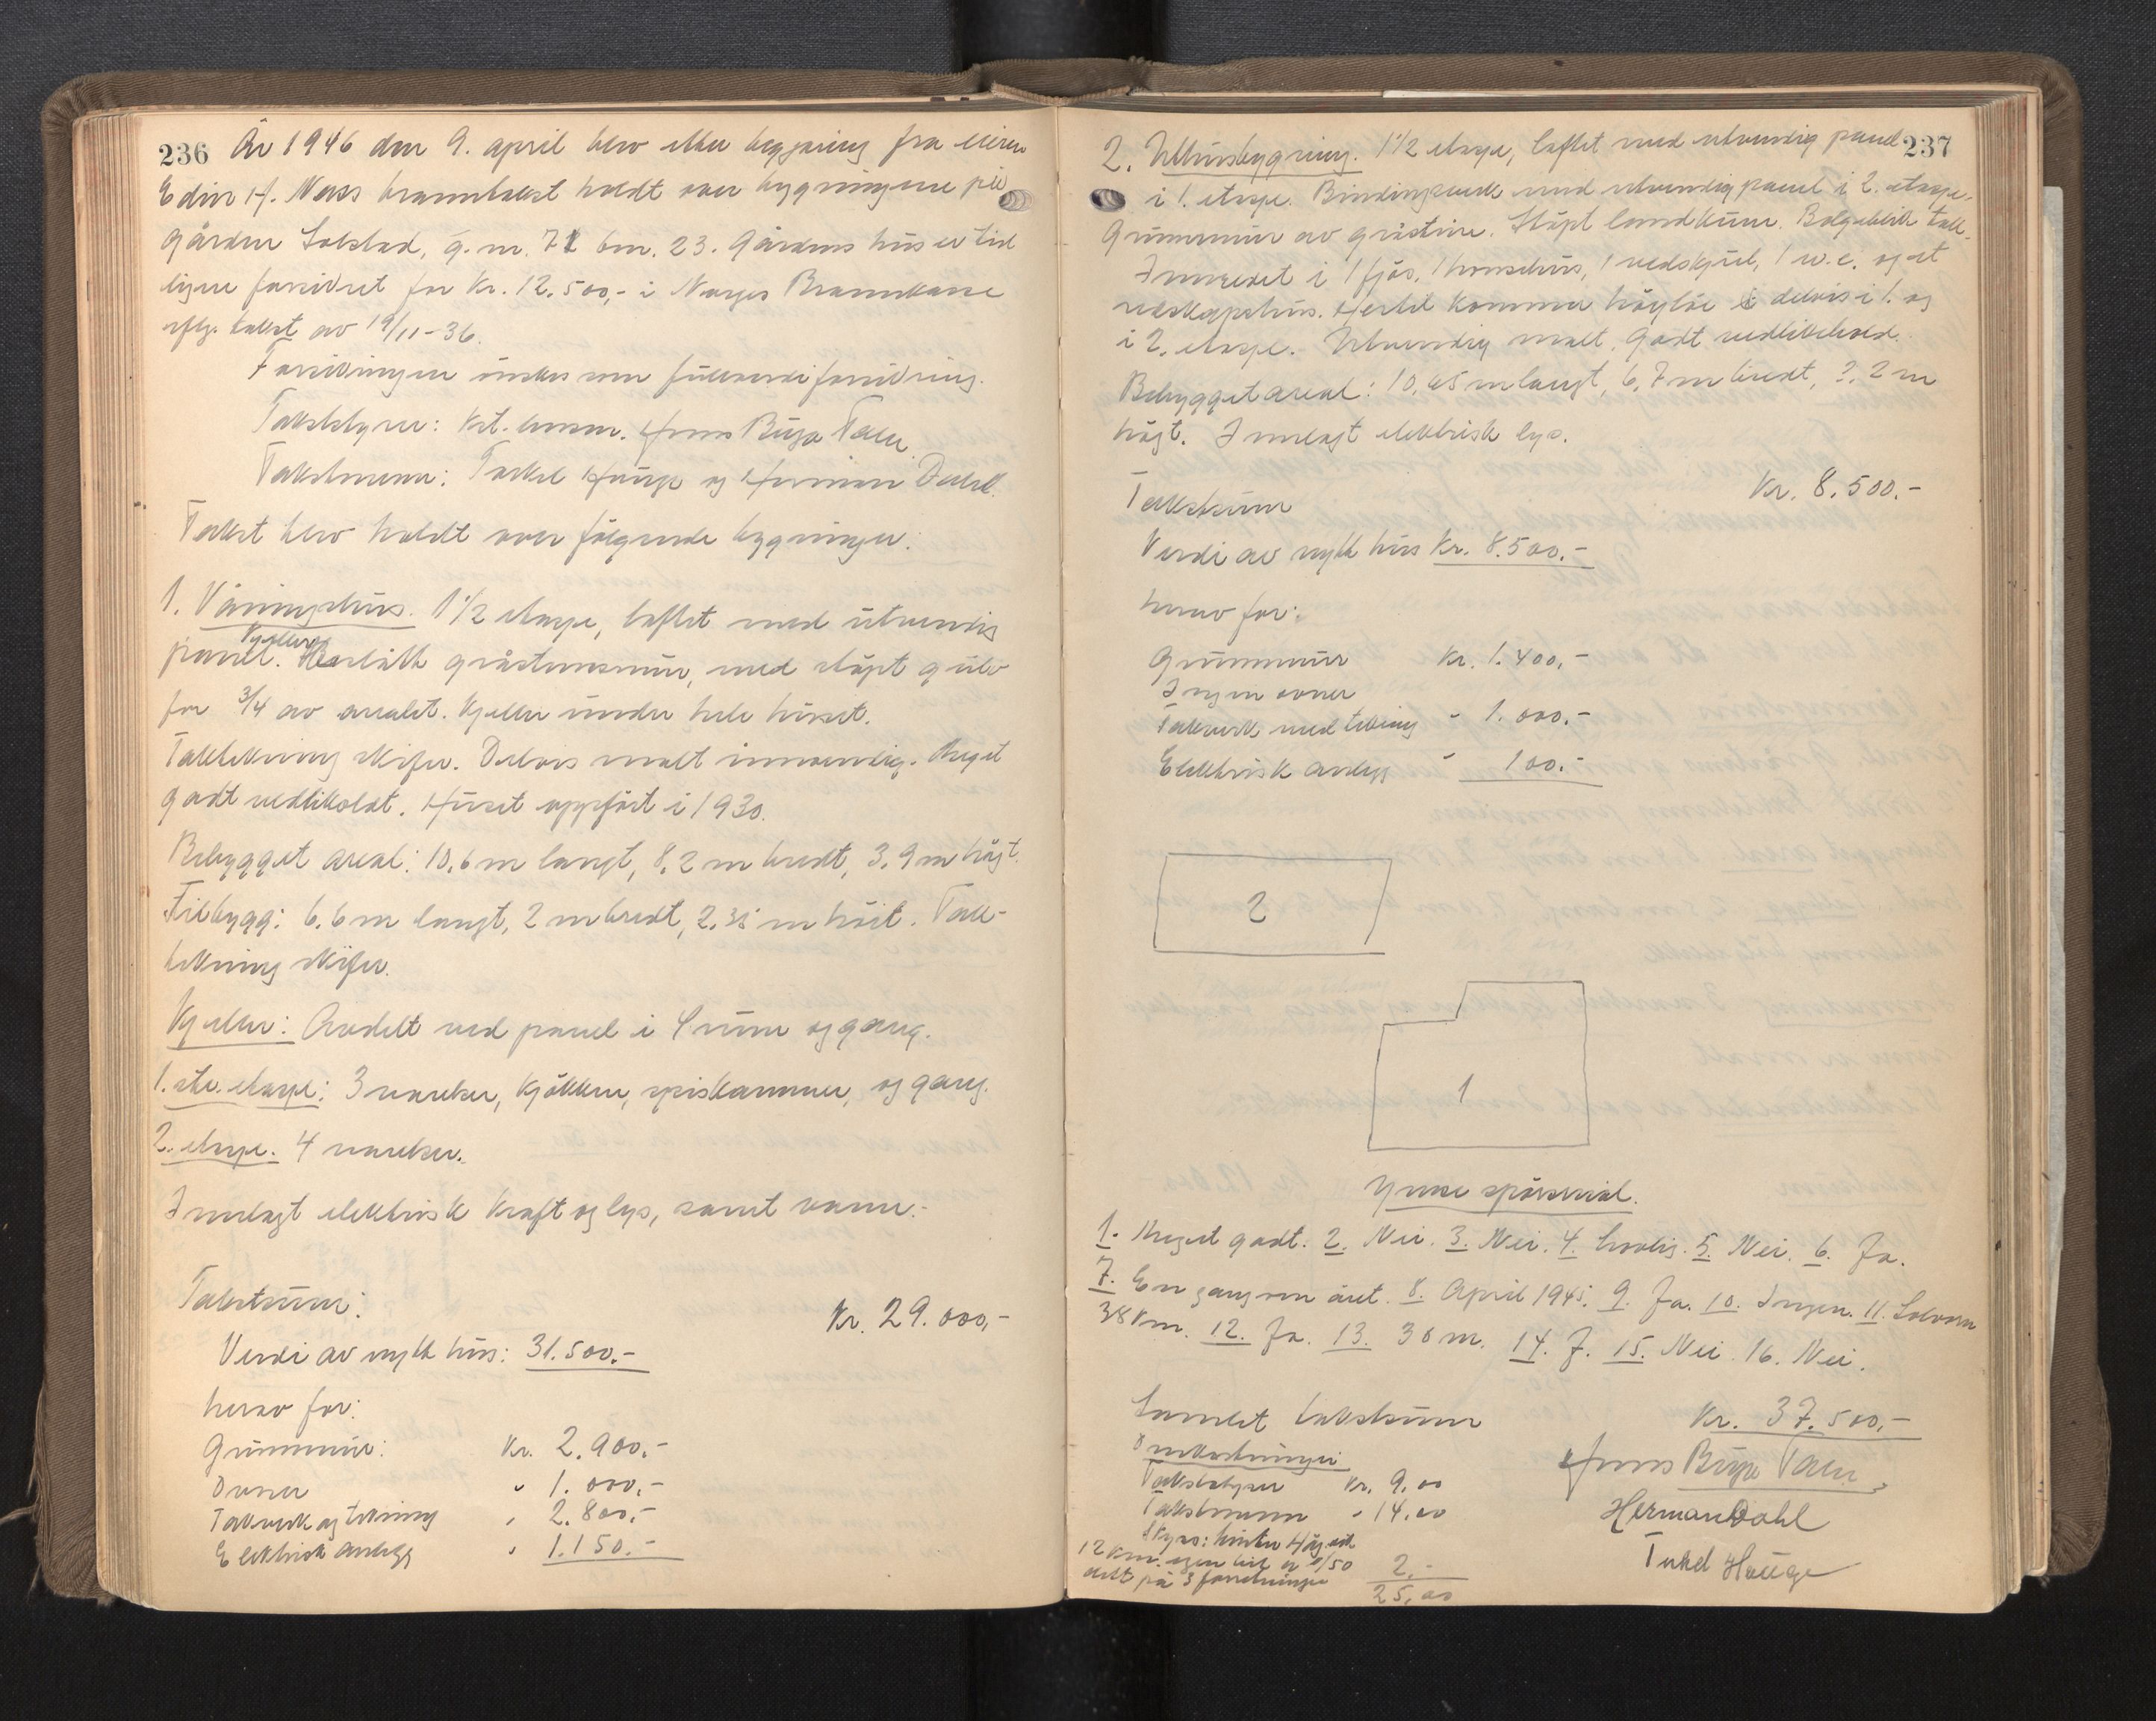 236 År 1946 den 9. april blev etter begjæring fra eieren
Edin H. Næss branntakst holdt over bygningene på
gården Solstad, g.nr. 71 bnr. 23. Gårdens hus er tid
ligere forsikret for kr. 12.500,- i Norges Brannkasse
iflg. takst av 19/11-36.
Forsikringen önskes som fullverdiforsikring.
Takstbestyrer: kst. lensm. Hans Böja Taen
Takstmenn: Torkel Hauge og Herman Dahl.
Takst blev holdt over fölgende bygninger:
1. Våningshus. 1 1/2 etasje, laftet med utvendig
Kjeller
panel. gråstensmur, med stöpt gulv
for 3/4 av arealet. Kjeller under hele huset.
Taktekning skifer. Delvis malt innvendig. Meget
godt vedlikeholdt. Huset oppfört i 1930.
Bebygget areal: 10,6 m langt, 8,2 m bredt, 3,9 m högt.
Tilbygg: 6,6 m langt, 2 m bredt, 2,35 m höit. Tak-
tekning skifer.
Kjeller: Avdelt ved panel i 4 rum og gang.
1.ste. etasje: 3 værelser, kjökken, spiskammer, og gang.
2. etasje. 4 værelser.
Innlagt elektrisk kraft og lys, samt vann.-
Takstsum:
Kr. 29.000,-
Verdi av nytt hus: 31.500.-
herav for:
Grunnmur: Kr. 2.900.-
Ovner " 1.000,-
Takverk og tekning " 2.800,-
Elektrisk anlegg " 1.150.-
237
2. Uthusbygning. 1 1/2 etasje, laftet med utvendig panel
i 1. etasje. Bindingsverk med utvendig panel i 2. etasje.
Grunnmur av gråsten. Stöpt landkum. Bölgeblikk tak.
Innredet i 1 fjös, 1 hönsehus, 1 vedskjul, 1 w.c. og et
redskapshus. Hertil kommer höyløe delvis i 1. og
i 2. etasje. Utvendig malt. Godt vedlikehold.
Bebygget areal: 10,65 m langt, 6,7 m bredt, 2 m
högt. Innlagt elektrisk lys.
Takstsum Kr. 8.500.-
Verdi av nytt hus Kr. 8.500.-
herav for:
Grunnmur Kr. 1.400,-
Ingen ovner
Takverk med tekning " 1.000.-
Elektrisk anlegg " 100.-
2
1
Ymse spörsmål.
1. Meget godt. 2. Nei. 3. Nei. 4. 5. Nei. 6. Ja.
7. En gang om året. 8. April 1945. 9. Ja. 10. Ingen. 11. Solvorn
38 km. 12. Ja. 13. 30 m. 14. J. 15. Nei. 16. Nei.
Samlet takstsum Kr. 37.500,-
Omkostninger
Takstbestyrer Kr. 9,00
Takstmenn " 14,00
Skyss:
12 km. egen bil 
delt på 3 forretninger 2.-
25,00
Hans Böja Taen
Herman Dahl
Torkel Hauge